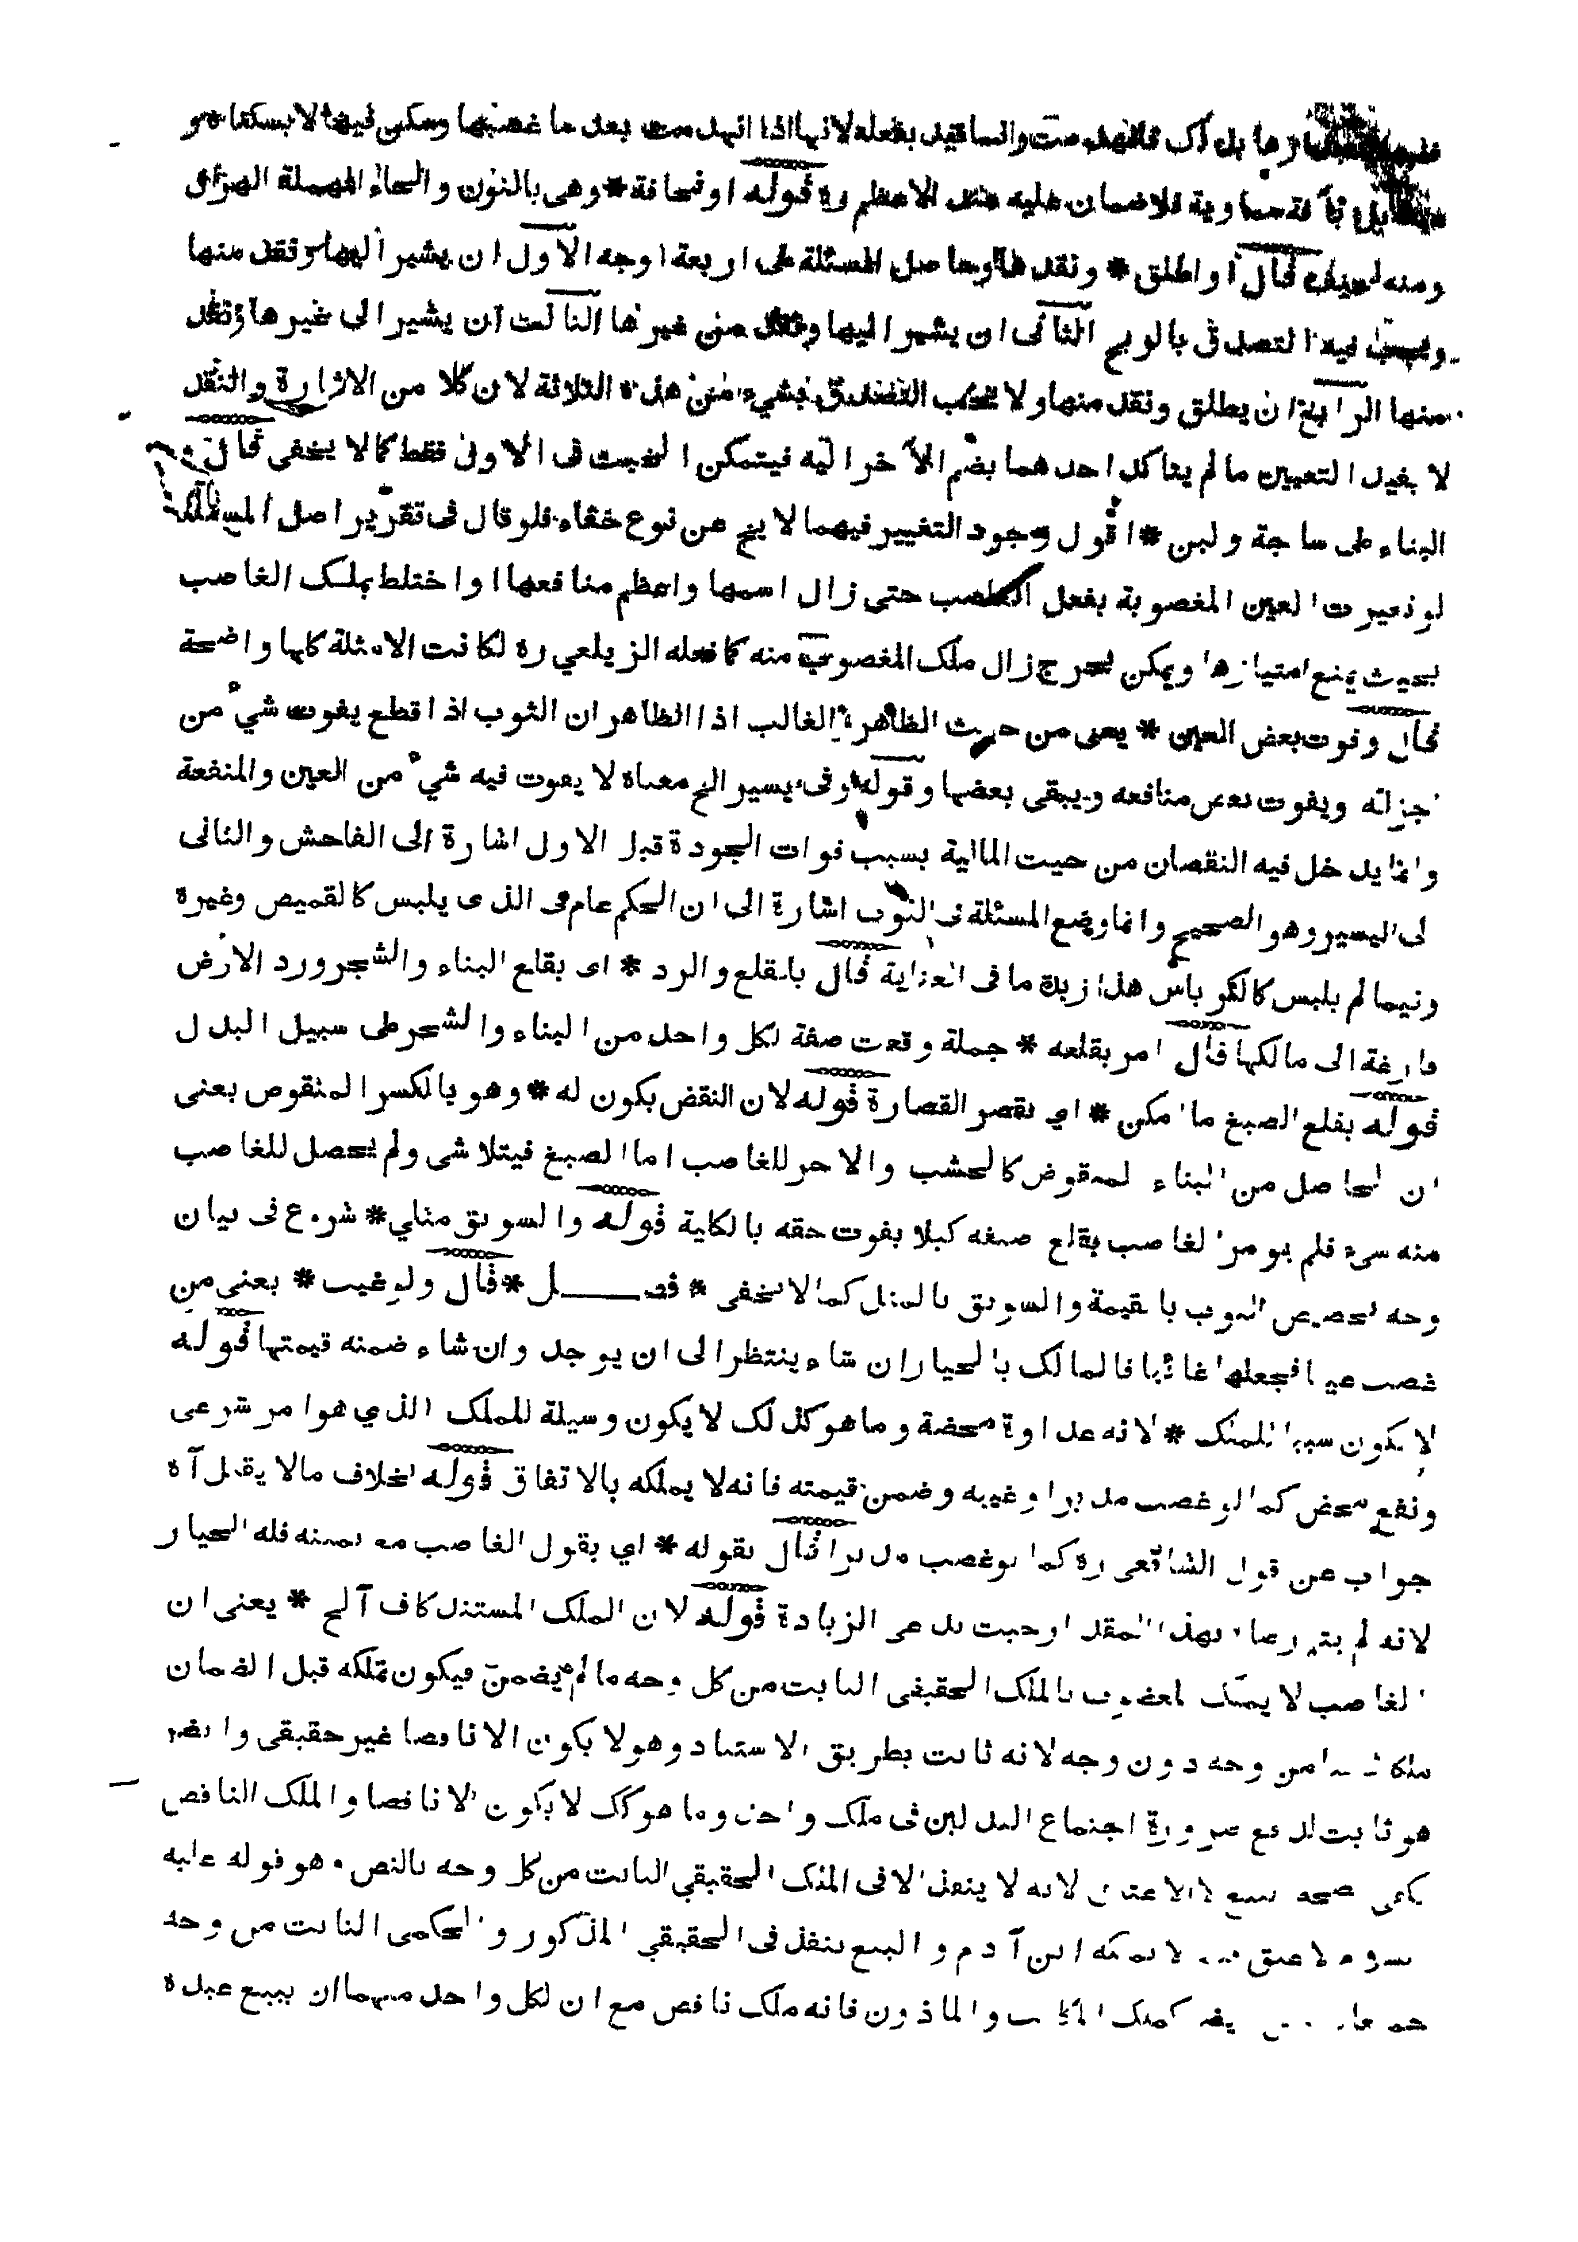 بل لك فانهدمت وانما قيد بفعله لانها اذا انهدمت بعد ما غصبها وسكن فيها لا بسكناه و
بل بآفة سماوية فلا ضمان عليه عند الاعظم ره قوله او نحافة * وهى بالنون والحاء المهملة الهزال
ومنه نحيف قال او اطلق * ونقد هاوحاصل المسئلة على اربعة اوجه الاول ان يشير اليها ونقد منها
ويجب فيه التصدق بالربح الثانى ان يشير اليها ونقد من غيرها الثالث ان يشير الى غيرها ونقد
منها الرابع ان يطلق ونقد منها ولا يجب التصدق بشيء من هذه الثلاثة لان كلا من الاشارة والنقد
لا يفيد التعيين مالم يتأكد احدهما بضم الآخر اليه فيتمكن الخبث فى الاولى فقط كما لا يخفى قال و
البناء على ساجة ولبن * اقول وجود التغيير فيهما لا يخ عن نوع خفاء فلو قال فى تقرير اصل المسئلة
لو تغيرت العين المغصوبة بفعل الغاصب حتى زال اسمها واعظم منافعها او اختلط بملك الغاصب
بحيث يمنع امتيازها ويمكن بحرج زال ملك المغصوب منه كما فعله الزيلعي ره لكانت الامثلة كلها واضحة
قال وفوت بعض العين * يعنى من حيث الظاهر والغالب اذ الظاهر ان الثوب اذا قطع يفوت شيء من
اجزائه ويفوت بعض منافعه ويبقى بعضها وقوله وفى يسير الخ معناه لا يفوت فيه شيء من العين والمنفعة
وانما يدخل فيه النقصان من حيث المالية بسبب فوات الجودة قبل الاول اشارة الى الفاحش والثانى
لى اليسير وهو الصحيح وانما وضع المسئلة فى الثوب اشارة الى ان الحكم عام فى الذى يلبس كالقميص وغيره
وفيما لم يلبس كالكرباس هذا زبدة ما فى العناية قال بالقلع والرد * اى بقلع البناء والشجر ورد الارض
فارغة الى مالكها قال امر بقلعه * جملة وقعت صفة لكل واحد من البناء والشجر على سبيل البدل
قوله بقلع الصبغ ما امكن * اي بقصر القصارة قوله لان النقض يكون له * وهو بالكسر المنقوص يعنى
ان الحاصل من البناء المنقوض كالخشب والآجر للغاصب اما الصبغ فيتلاشى ولم يحصل للغاصب
منه شىء فلم يؤمر الغاصب بقلع صبغه كيلا يفوت حقه بالكلية قوله والسويق مثلي * شروع فى بيان
وجه تخصيص الثوب بالقيمة والسويق بالمثل كما لا يخفى * فصل * قال ولو غيب * يعنى من
غصب عينا فجعلها غائبا فالمالك بالخيار ان شاء ينتظر الى ان يوجد وان شاء ضمنه قيمتها قوله
لا يكون سببا للملك * لانه عداوة محضة وما هو كذلك لا يكون وسيلة للملك الذي هو امر شرعى
ونفع محض كما لو غصب مدبرا وغيبه وضمن قيمته فانه لا يملكه بالاتفاق قوله بخلاف مالا يقبل آه
جواب عن قول الشافعى ره كما لو غصب مدبرا قال بقوله * اي بقول الغاصب مع يمينه فله الخيار
لانه لم يتم رضاه بهذا المقدار حيث يدعى الزيادة قوله لان الملك المستند كاف آلخ * يعنى ان
الغاصب لا يملك المغصوب بالملك الحقيقى الثابت من كل وجه ما لم يضمن فيكون تملكه قبل الضمان
ملكا ثابتا من وجه دون وجه لانه ثابت بطريق الاستناد وهو لا يكون الا ناقصا غير حقيقى وايضا
هو ثابت لدفع ضرورة اجتماع البدلين فى ملك واحد وما هو كك لا يكون الا ناقصا والملك الناقص
يكفى صحة البيع لا الاعتاق لانه لا ينفذ الا فى الملك الحقيقي الثابت من كل وجه بالنص وهو قوله عليه
السلام لا عتق فيما لا يملكه ابن آدم والبيع ينفذ فى الحقيقي المذكور والحكمى الثابت من وجه
كملك المكاتب والماذون فانه ملك ناقص مع ان لكل واحد منهما ان يبيع عبده